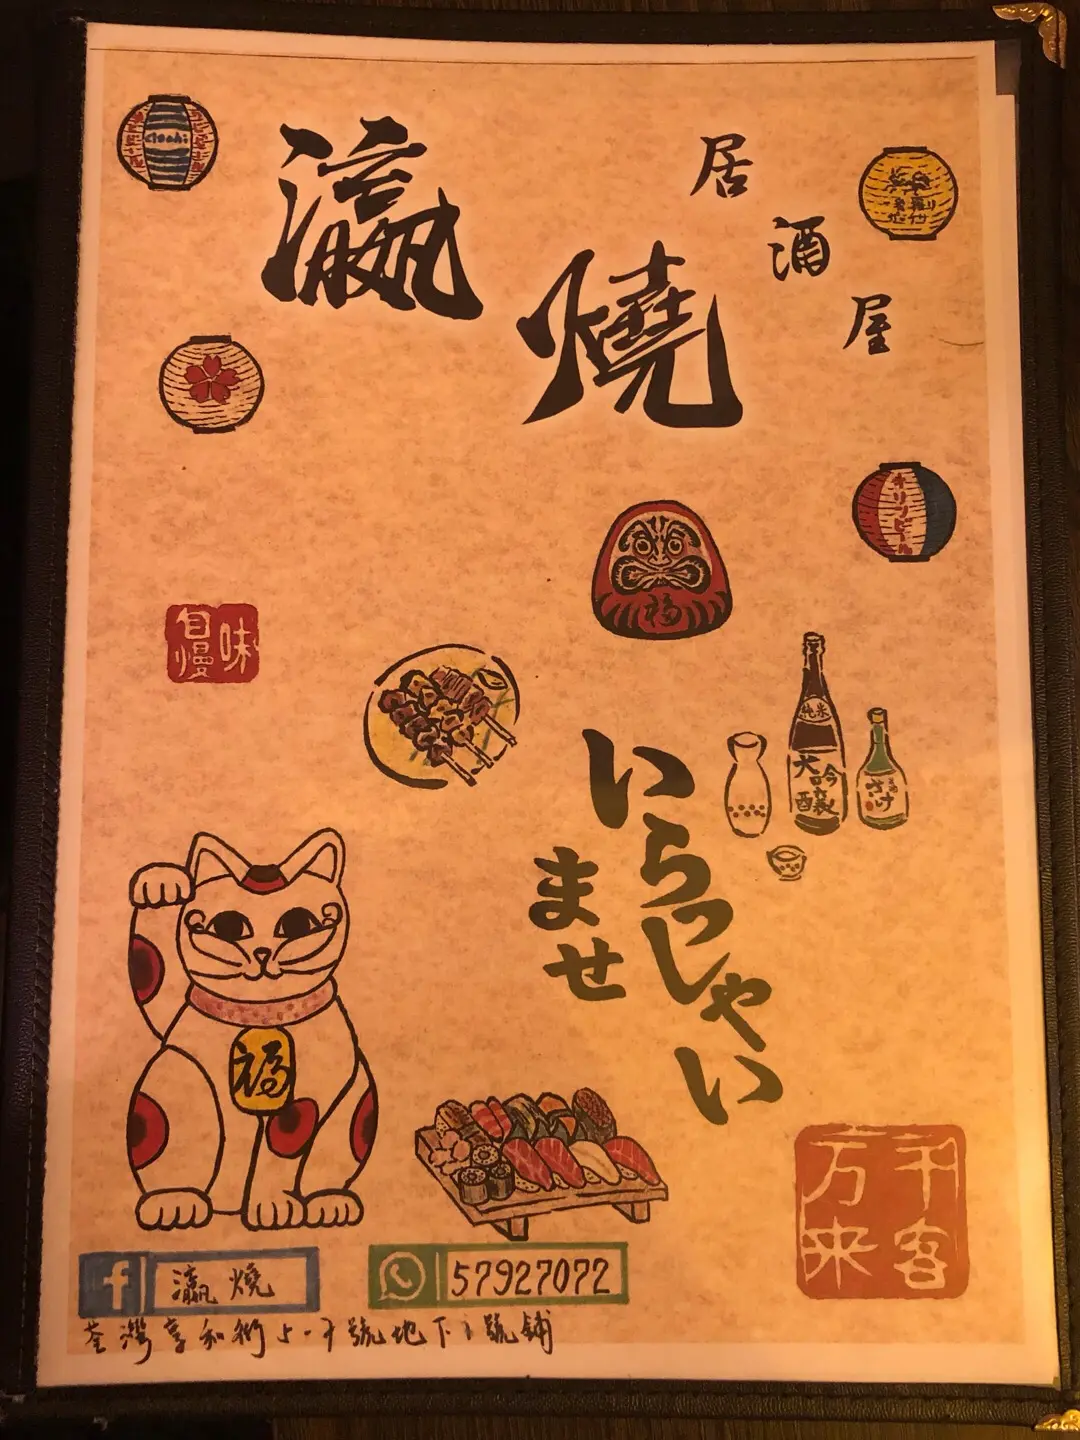 瀛燒
居酒屋
キリンビール
味自慢
福
純米
大吟醸
さけ
いらっしゃい
ませ
福
千客万来
f 瀛燒
57927072
荃灣享和街5-7號地下1號舖